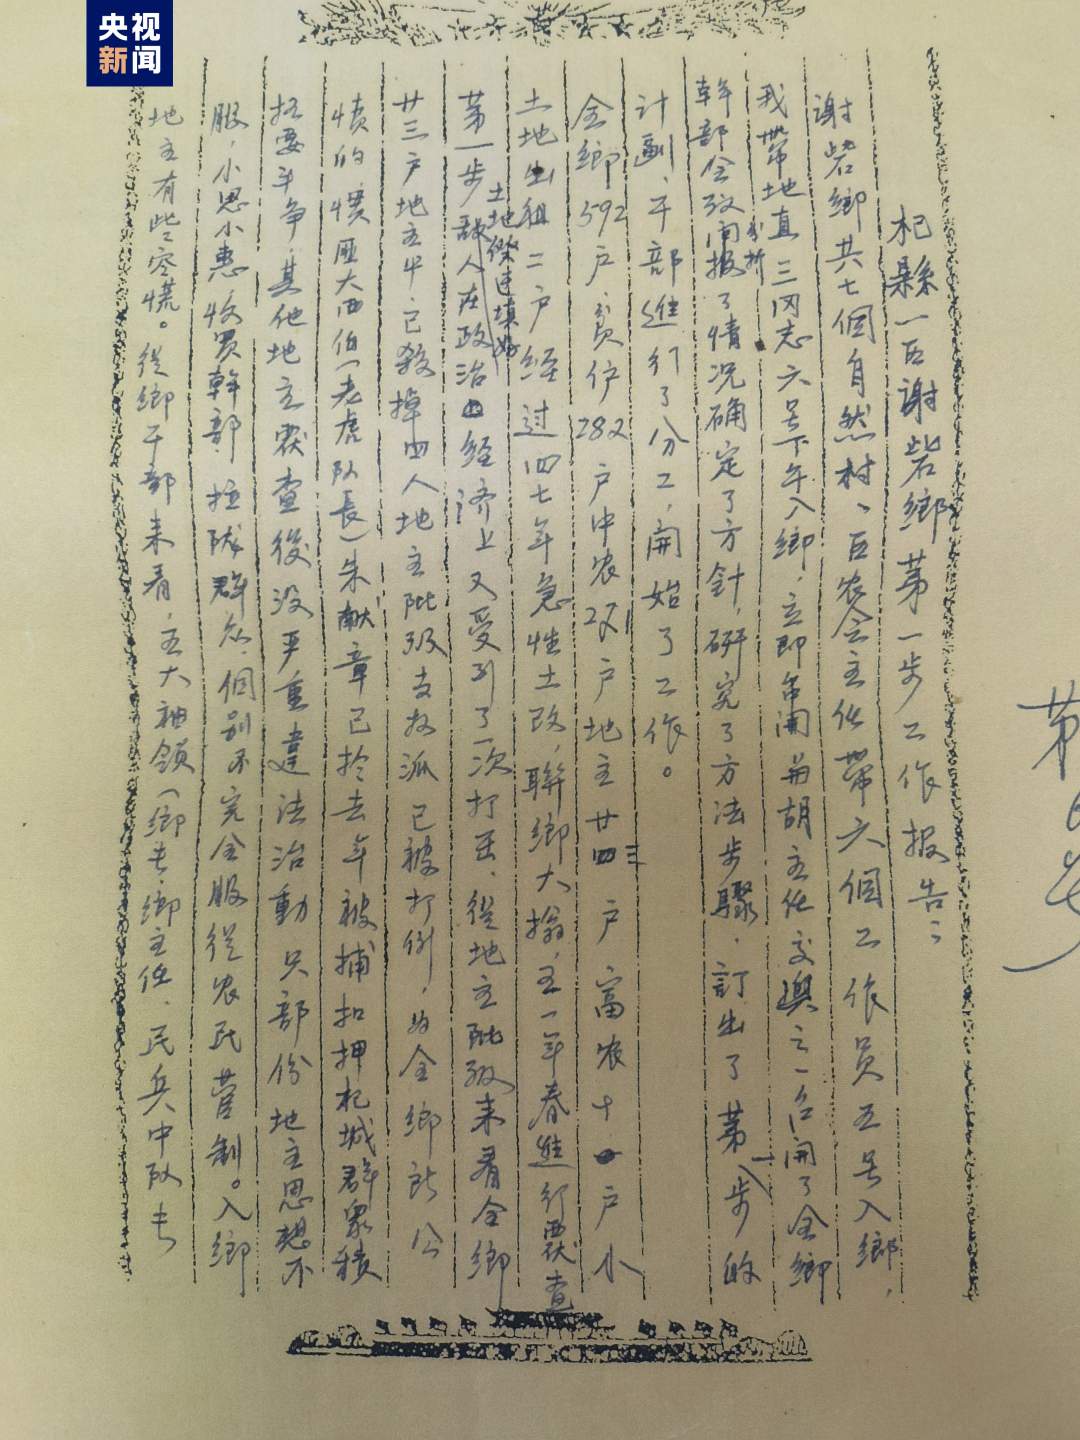 央视
新闻
杞縣一区谢砦鄉第一步工作报告：
谢砦鄉共七個自然村、区农会主任帶六個工作員五号入鄉，
我帶地直三同志六号下午入鄉，立即召開与胡主任交换之一召開了全鄉
幹部会议简报了情况确定了方針，研究了方法步驟，訂出了第一步的
分析
计劃，干部進行了分工，開始了工作。
全鄉592户，貧僱282户中农271户地主廿三户富农十户小
土地出租二户经过四七年急性土改，聯鄉大搧，五一年春進行覆查
土地傑進填好
第一步敌人在政治经济上又受到了一次打击、從地主阶级来看全鄉
廿三户地主中已殺掉四人地主阶级支权派已被打倒，为全鄉所公
愤的惯匪大西伯（老虎队長）朱献章已於去年被捕扣押杞城群眾積
极要斗争，其他地主覆查後没严重違法活動只部份地主思想不
服，小恩小惠，收買幹部拉陇群众，個别不完全服從农民管制。入鄉
地主有些恐慌。從鄉干部来看，五大袖領（鄉長鄉主任、民兵中队長